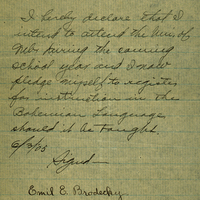 I hereby declare that I
intend to attend the Univ. of
Neb. during the coming
school year and I now
pledge myself to register
for instruction in the
Bohemian Language
should it be taught.
6/3/03
Signed—
Emil E. Brodecky